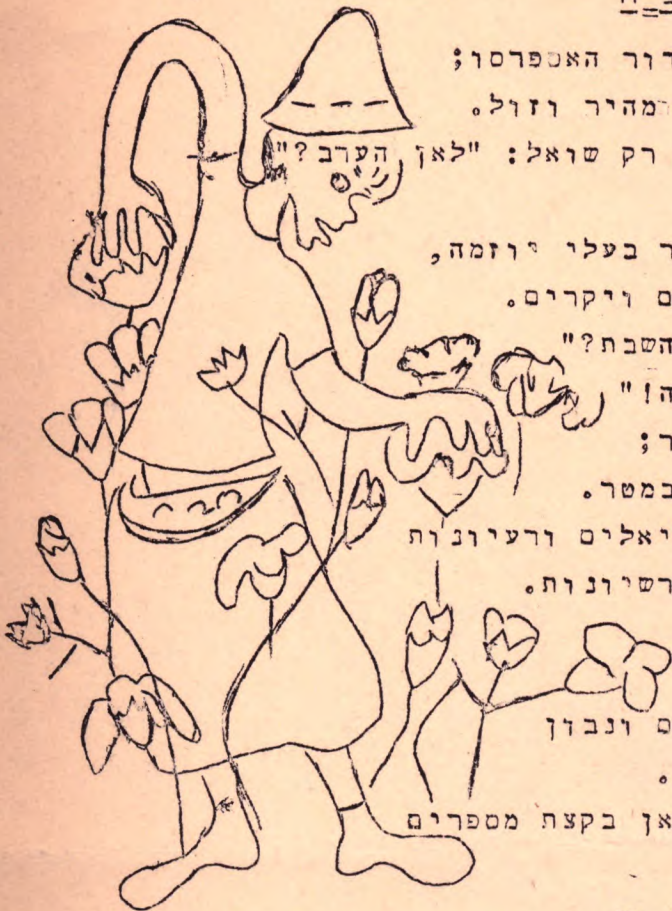 דור האספרסו;
מהיר וזול.
רק שואל: "לאן הערב?"
ר בעלי יוזמה,
ם ויקרים.
השבת?"
ה!"
ר;
במטר.
יאלים ורעיונות
רשיונות.
ם ונבון
.
אן בקצת מספרים